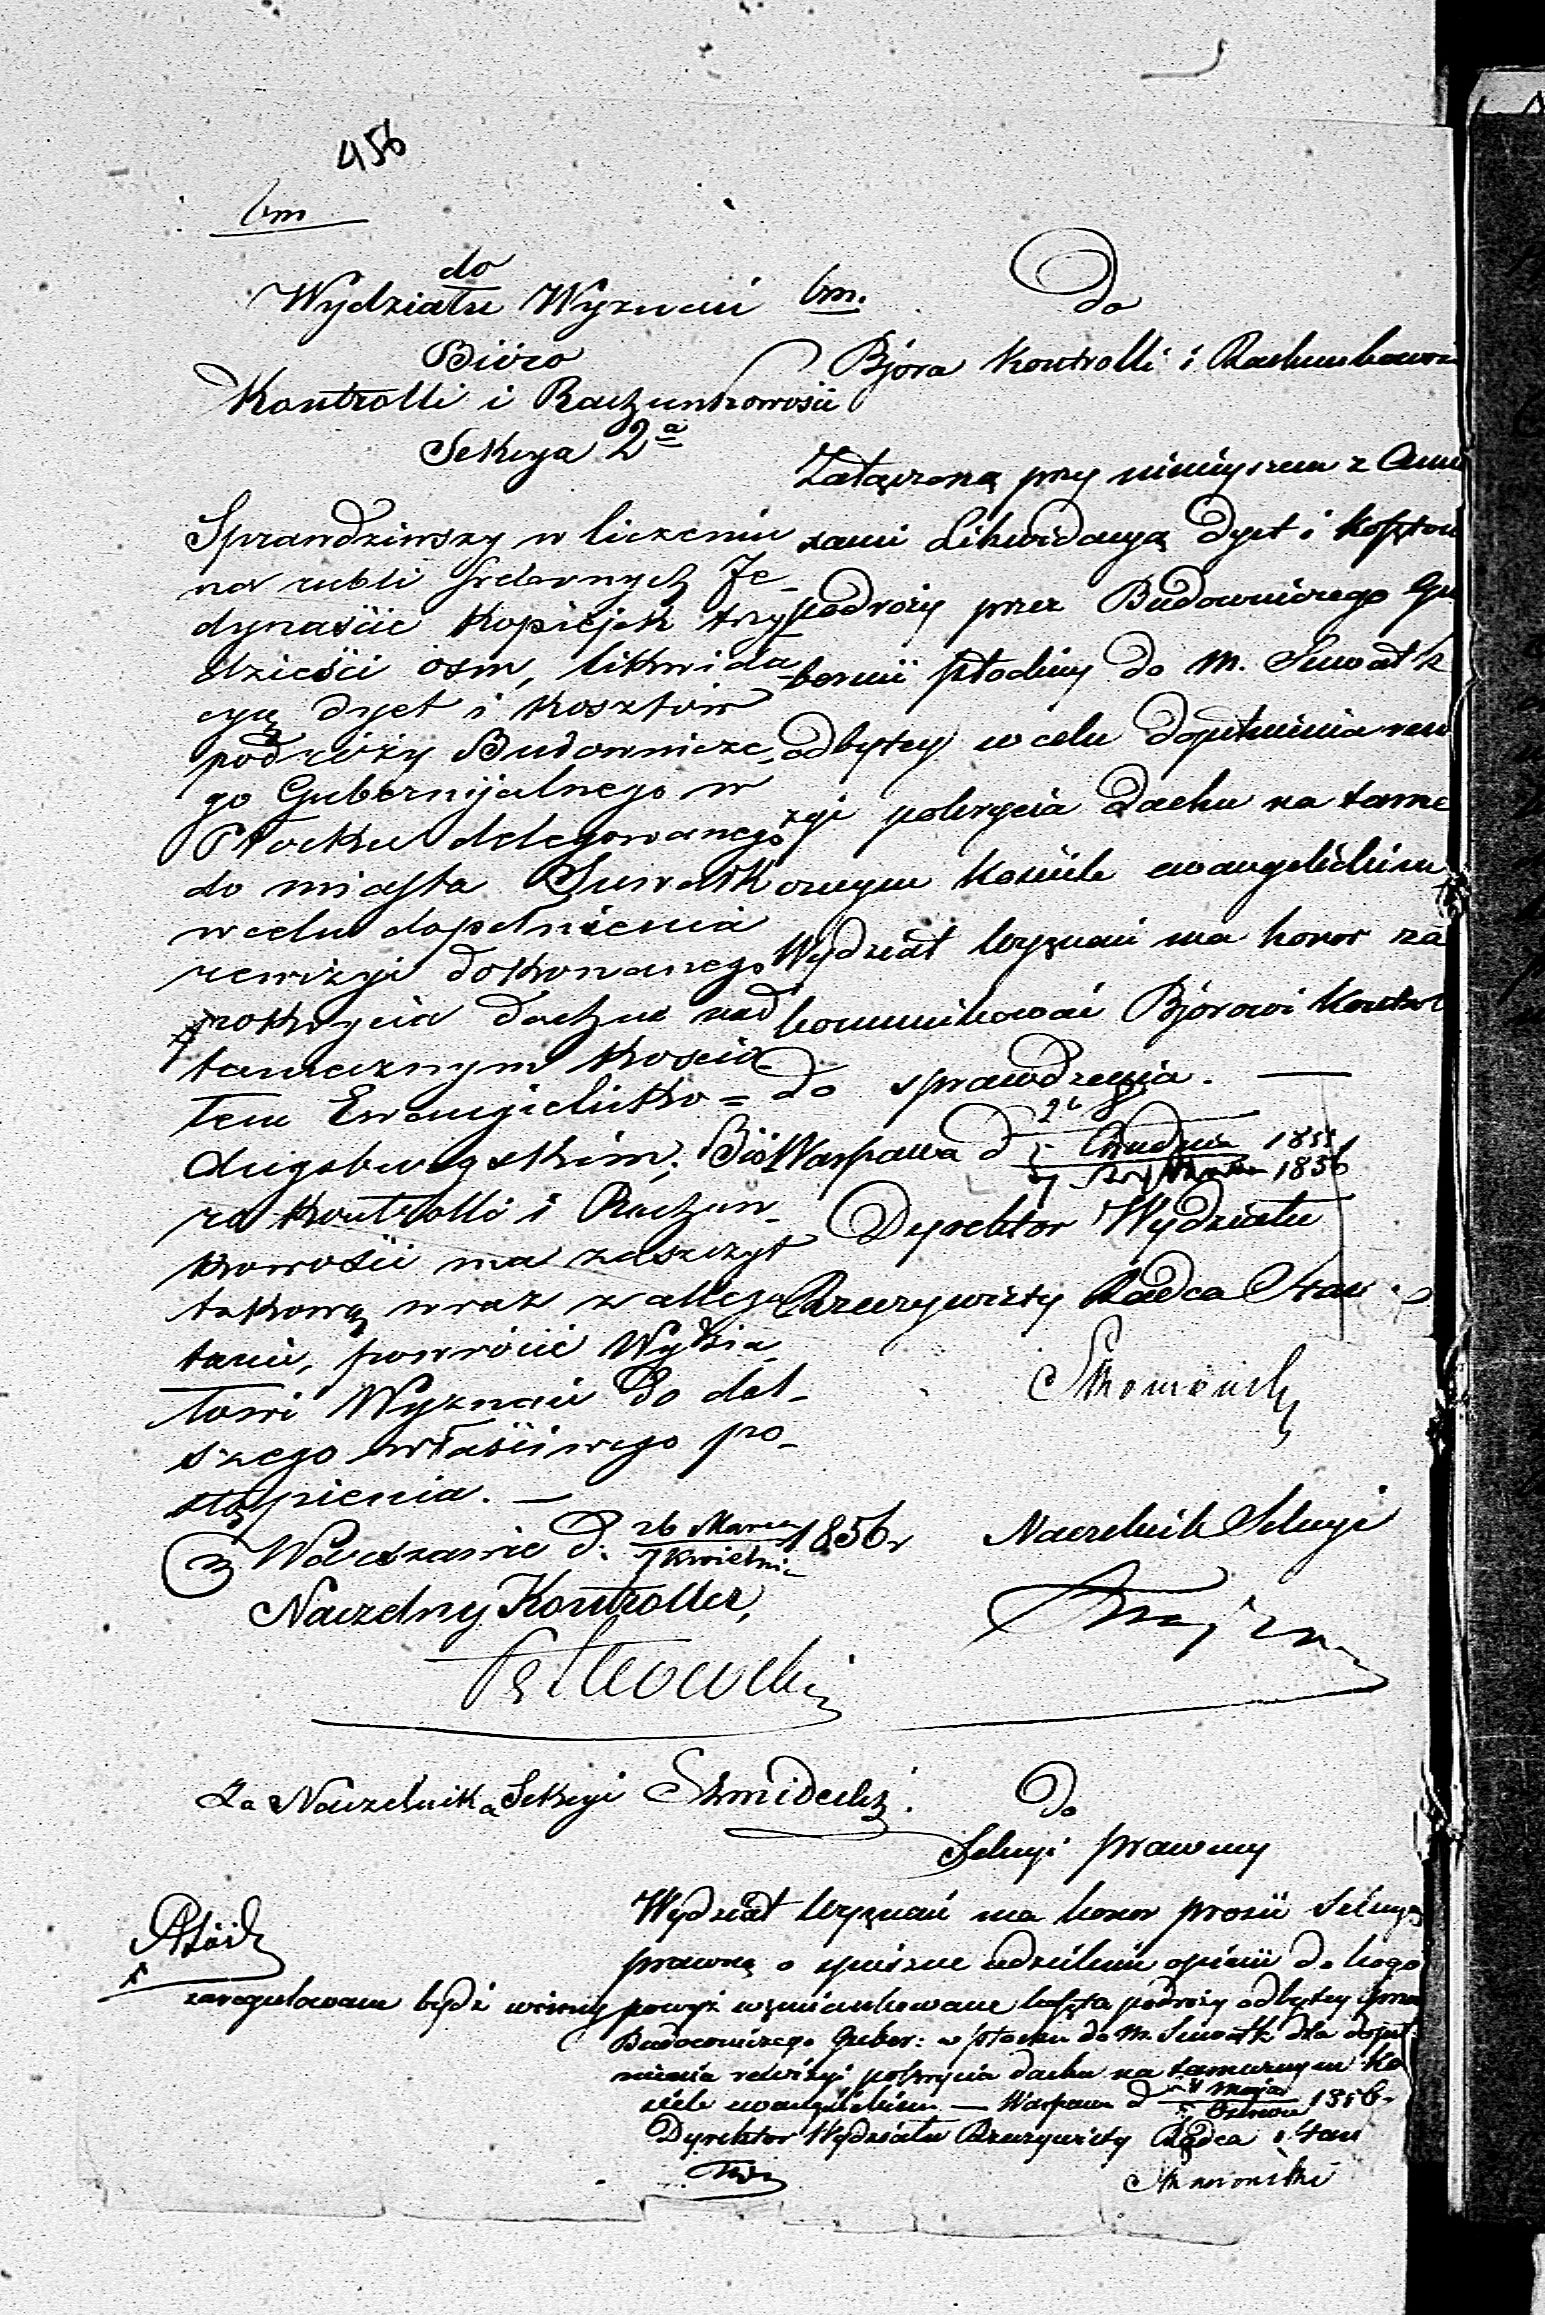 456
bm
do
Wydziału Wyznań
Biuro
Kontrolli i Rachunkowości
Sekcya 2ª
Sprawdziwszy w liczeniu
na rubli srebrnych Je-
dynaście kopiejek trzy
dzieści ośm, likwida-
cyą dyet i kosztów
podróży Budownicze-
go Gubernijalnego w
Płocku delegowanego
do miasta Suwałk
w celu dopełnienia
rewizyi dokonanego
pokrycia dachu nad
tamecznym kościo-
łem Ewangielicko=
Augsburgskim; Bió
ra Kontrolli i Rachun-
kowości ma zaszczyt
takową wraz z allega
tami, powrócić Wydzia
łowi Wyznań do dal-
szego właściwego po-
stąpienia. —
w Warszawie d. 26 Marca / 7 Kwietnia 1856 r
Naczelny Kontroller,
Za Naczelnika Sekcyi
bm.
Do
Bjóra Kontrolli i Rachunkowości
Załączoną przy niniejszem z
sami Likwidacyą dyet i kosztów
podróży przez Budowniczego Gu
bernii Płockiej do M. Suwałk
odbytej w celu dopełnienia rewi
zyi pokrycia dachu na tame
cznym kościele ewangelickim
Wydział Wyznań ma honor za
kommunikować Bjórowi Kontrol
do sprawdzenia. —
Warszawa d Grudnia 1855 / 7 Stycznia 1856
Dyrektor Wydziału
Rzeczywisty Radca Stanu
Naczelnik Sekcyi
Do
Sekcyi prawnej
Wydział Wyznań ma honor prosić Sekcyą
prawną o spieszne udzielenie opinii do kogo
zaregulowane bydź winny powyż wzmiankowane koszta podróży odbytej przez
Budowniczego Guber: w Płocku do M. Suwałk dla dopeł-
nienia rewizyi pokrycia dachu na tamecznym Ko
ściele ewangelickim — Warszawa d Maja / Czerwca 1856 r
Dyrektor Wydziału Rzeczywisty Radca Stanu